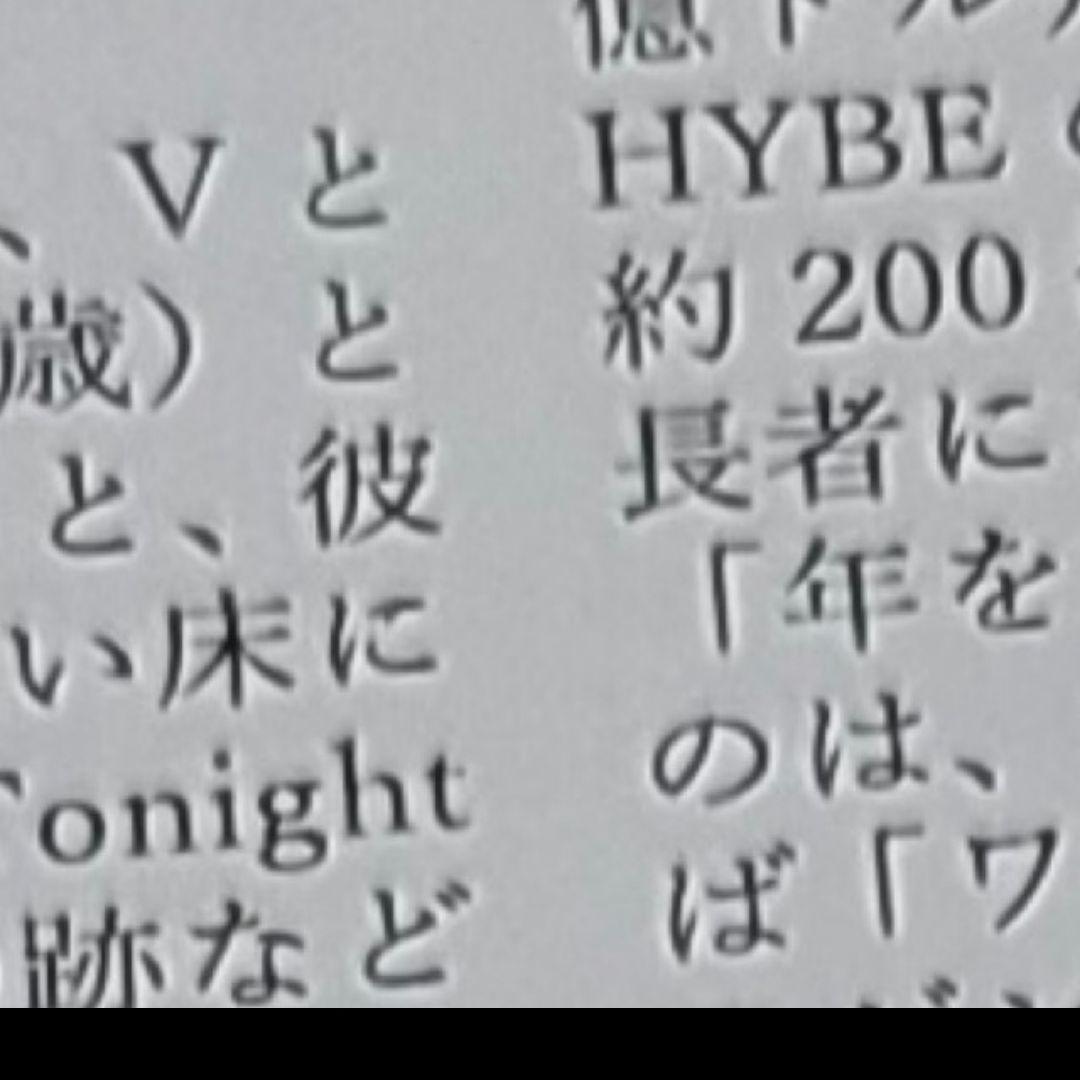 、V と
歳) と
と、彼
い床に
Tonight
跡など
億ドル
HYBE
約 200
長者に
「年を
のは、
ば「ワ